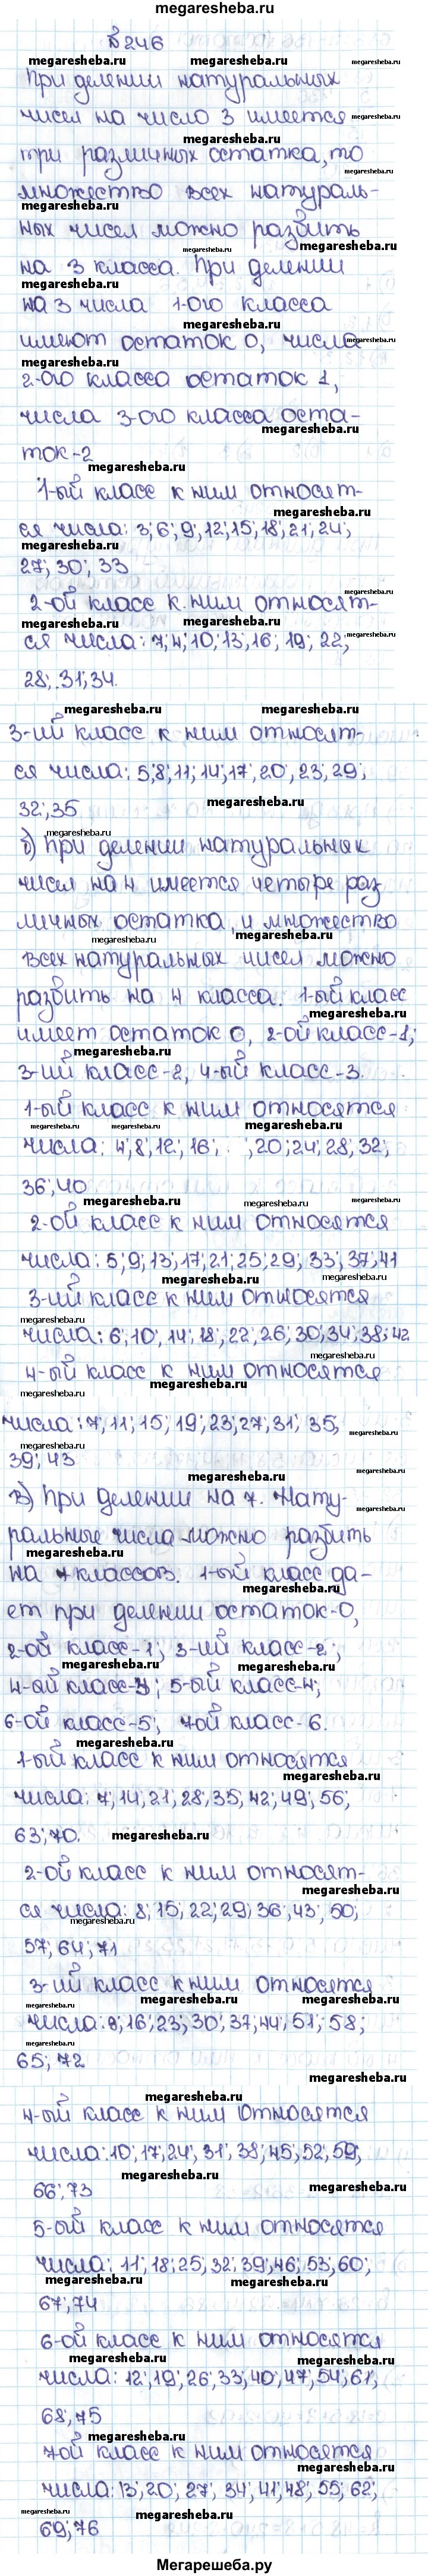 megaresheba.ru
№246
При делении натуральных
чисел на число 3 имеется
три различных остатка, то
множество всех натураль-
ных чисел можно разбить
на 3 класса. При делении
на 3 числа 1-ого класса
имеют остаток 0, числа
2-ого класса остаток 1,
числа 3-ого класса оста-
ток-2
1-ый класс к ним относят-
ся числа: 3;6;9;12;15;18;21;24;
27;30;33
2-ой класс к ним относят-
ся числа: 7;4;10;13;16; 19; 22;
28; 31;34.
3-ий класс к ним относят-
ся числа: 5;8;11;14;17;20;23;29;
32;35
б) При делении натуральных
чисел на 4 имеется четыре раз
личных остатка, и множество
всех натуральных чисел можно
разбить на 4 класса. 1-ый класс
имеет остаток 0, 2-ой класс-1;
3-ий класс-2, 4-ый класс-3.
1-ый класс к ним относятся
числа: 4;8;12; 16; ;20;24;28;32;
36;40
2-ой класс к ним относятся
числа: 5;9;13;17;21;25;29; 33;37;41
3-ий класс к ним относятся
числа: 6;10;14;18;22;26;30;34;38;42
4-ый класс к ним относятся
числа: 7;11;15;19;23;27;31; 35;
39;43
в) При делении на 7. Нату-
ральные числа можно разбить
на 7 классов. 1-ый класс да-
ет при делении остаток-0,
2-ой класс-1; 3-ий класс-2;
4-ый класс-3; 5-ый класс-4;
6-ой класс-5; 7ой класс-6.
1-ый класс к ним относятся
числа: 7;14;21;28;35;42;49;56;
63;70.
2-ой класс к ним относят-
ся числа: 8;15;22;29;36;43;50;
57;64;71
3-ий класс к ним относятся
числа: 9;16;23;30;37;44;51;58;
65;72
4-ый класс к ним относятся
числа:10;17;24;31;38;45;52;59;
66;73
5-ый класс к ним относятся
числа: 11;18;25;32;39;46;53;60;
67;74
6-ой класс к ним относятся
числа: 12;19;26;33;40;47;54;61;
68;75
7ой класс к ним относятся
числа:13;20; 27; 34;41;48;55;62;
69;76
Мегарешеба.ру